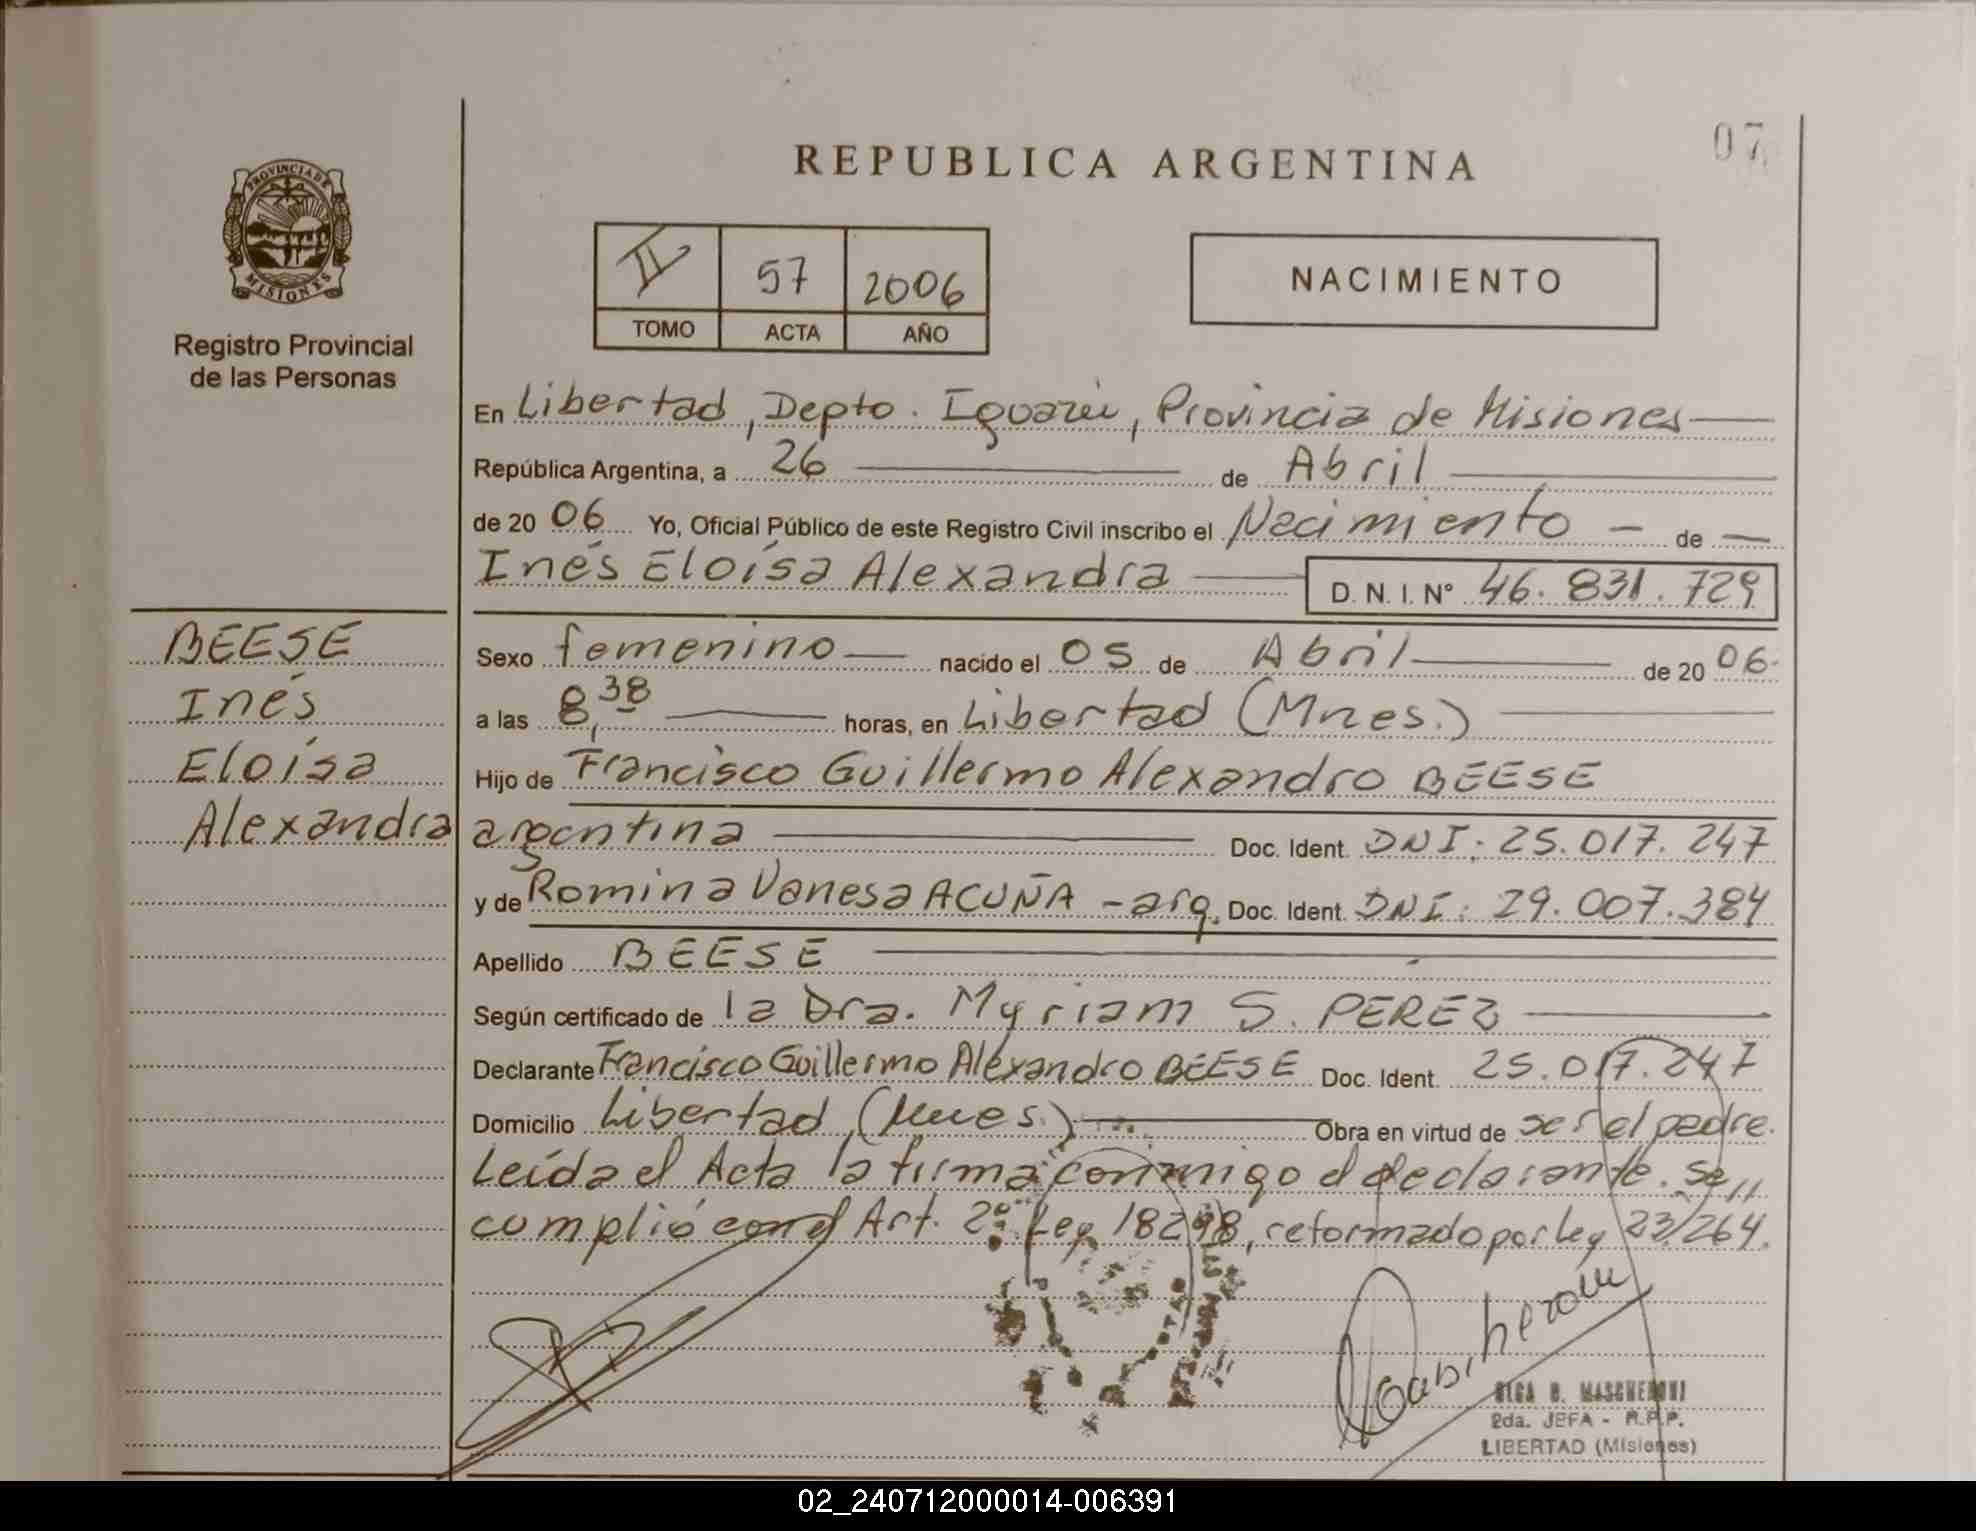 07
REPUBLICA ARGENTINA
PROVINCIA DE
MISIONES
Registro Provincial
de las Personas
II 57 2006
TOMO ACTA AÑO
NACIMIENTO
En Libertad, Depto. Iguazú, Provincia de Misiones
República Argentina, a 26 de Abril
de 20 06 Yo, Oficial Público de este Registro Civil inscribo el Nacimiento - de
Inés Eloísa Alexandra D. N. I. Nº 46.831.729
BEESE
Inés
Eloísa
Alexandra
Sexo femenino nacido el 05 de Abril de 20 06.
a las 8,38 horas, en Libertad (Mnes.)
Hijo de Francisco Guillermo Alexandro BEESE
argentina Doc. Ident. DNI: 25.017.247
y de Romina Vanesa ACUÑA - arg. Doc. Ident. DNI: 29.007.384
Apellido BEESE
Según certificado de la Dra. Myriam S. PEREZ
Declarante Francisco Guillermo Alexandro BEESE Doc. Ident. 25.017.247
Domicilio Libertad (Mnes.) Obra en virtud de ser el padre.
Leída el Acta la firma conmigo el declarante. Se,,
cumplió con el Art. 2º Ley 18298, reformado por Ley 23/264.
OLGA B. MASCHERONI
2da. JEFA - R.P.P.
LIBERTAD (Misiones)
02_240712000014-006391